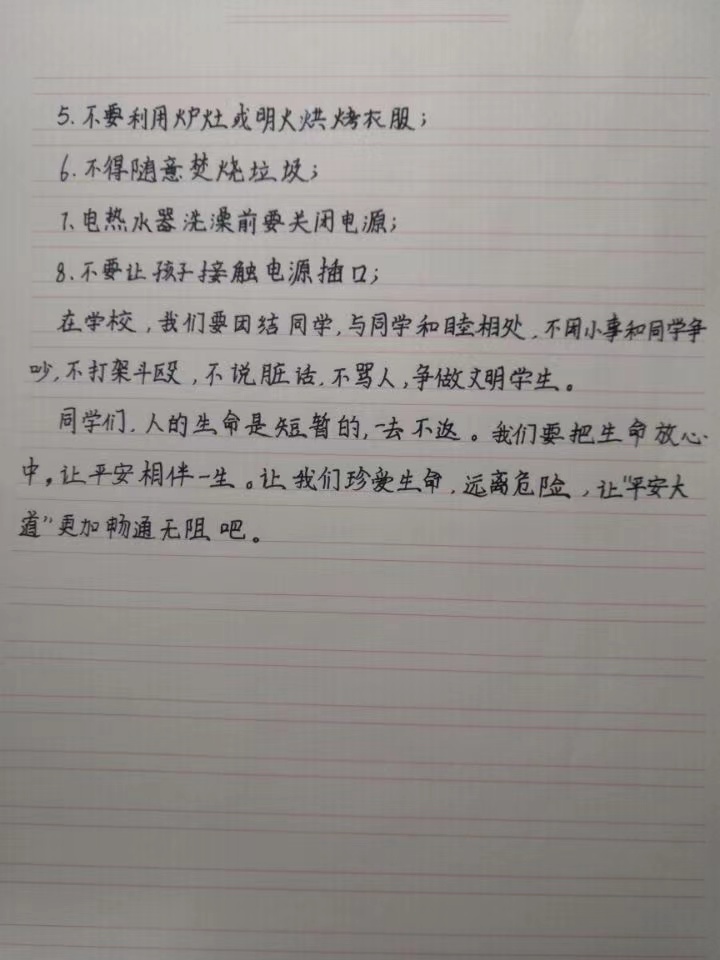 5.不要利用炉灶或明火烘烤衣服;
6.不得随意焚烧垃圾;
7.电热水器洗澡前要关闭电源;
8.不要让孩子接触电源插口;
在学校,我们要团结同学,与同学和睦相处,不因小事和同学争
吵,不打架斗殴,不说脏话,不骂人,争做文明学生。
同学们,人的生命是短暂的,一去不返。我们要把生命放心
中,让平安相伴一生。让我们珍爱生命,远离危险,让“平安大
道”更加畅通无阻吧。